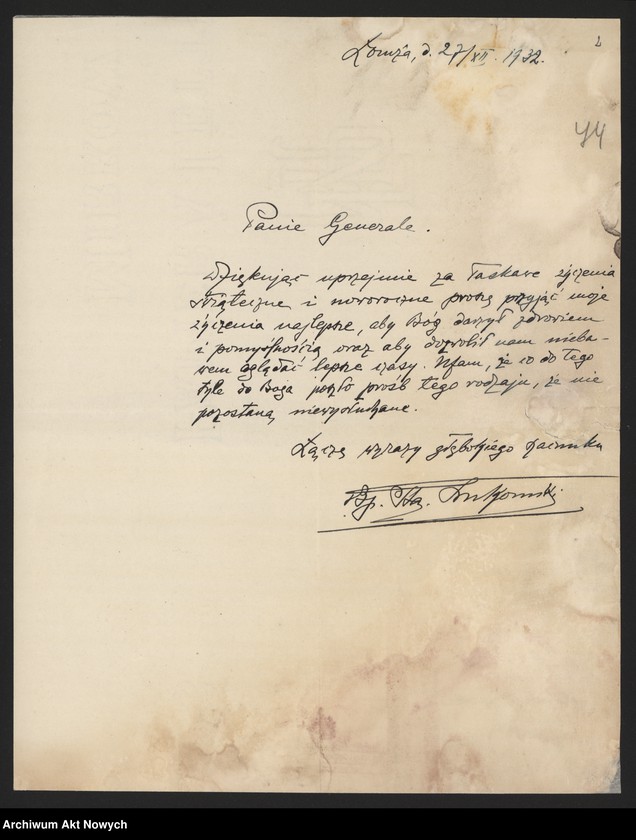 Łomża, d. 27/XII. 1932.
44
Panie Generale.
Dziękując uprzejmie za łaskawe życzenia
świąteczne i noworoczne proszę przyjąć moje
życzenia najlepsze, aby Bóg darzył zdrowiem
i pomyślnością oraz aby dozwolił nam nieba-
wem oglądać lepsze czasy. Ufam, że co do tego
tyle do Boga poszło próśb tego rodzaju, że nie
pozostaną niewysłuchane.
Łączę wyrazy głębokiego szacunku
Bp. St. Łukomski
Archiwum Akt Nowych